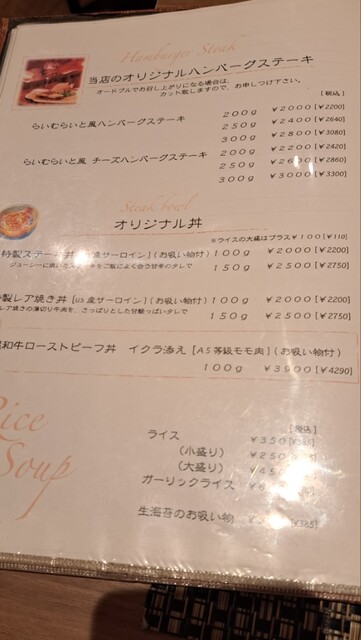 Hamburger Steak
当店のオリジナルハンバーグステーキ
オードブルでお召し上がりになる場合は、
カット致しますので、お申しつけ下さい。
[税込]
らいむらいと風ハンバーグステーキ 200g ¥2000[¥2200]
250g ¥2400[¥2640]
300g ¥2800[¥3080]
らいむらいと風 チーズハンバーグステーキ 200g ¥2200[¥2420]
250g ¥2600[¥2860]
300g ¥3000[¥3300]
Steak bowl
オリジナル丼
※ライスの大盛はプラス¥100[¥110]
特製ステーキ丼 産サーロイン](お吸い物付) 100g ¥2000[¥2200]
ジューシーに焼いた をご飯によく合う甘辛のタレで 150g ¥2500[¥2750]
製レア焼き丼 [US産サーロイン](お吸い物付) 100g ¥2000[¥2200]
レア焼きの薄切り牛肉を、さっぱりとした甘酸っぱいタレで 150g ¥2500[¥2750]
和牛ローストビーフ丼 イクラ添え [A5等級モモ肉](お吸い物付)
100g ¥3900[¥4290]
Rice
Soup
[税込]
ライス ¥350[¥385]
(小盛り) ¥250
(大盛り)
ガーリックライス
生海苔のお吸い物 [¥385]